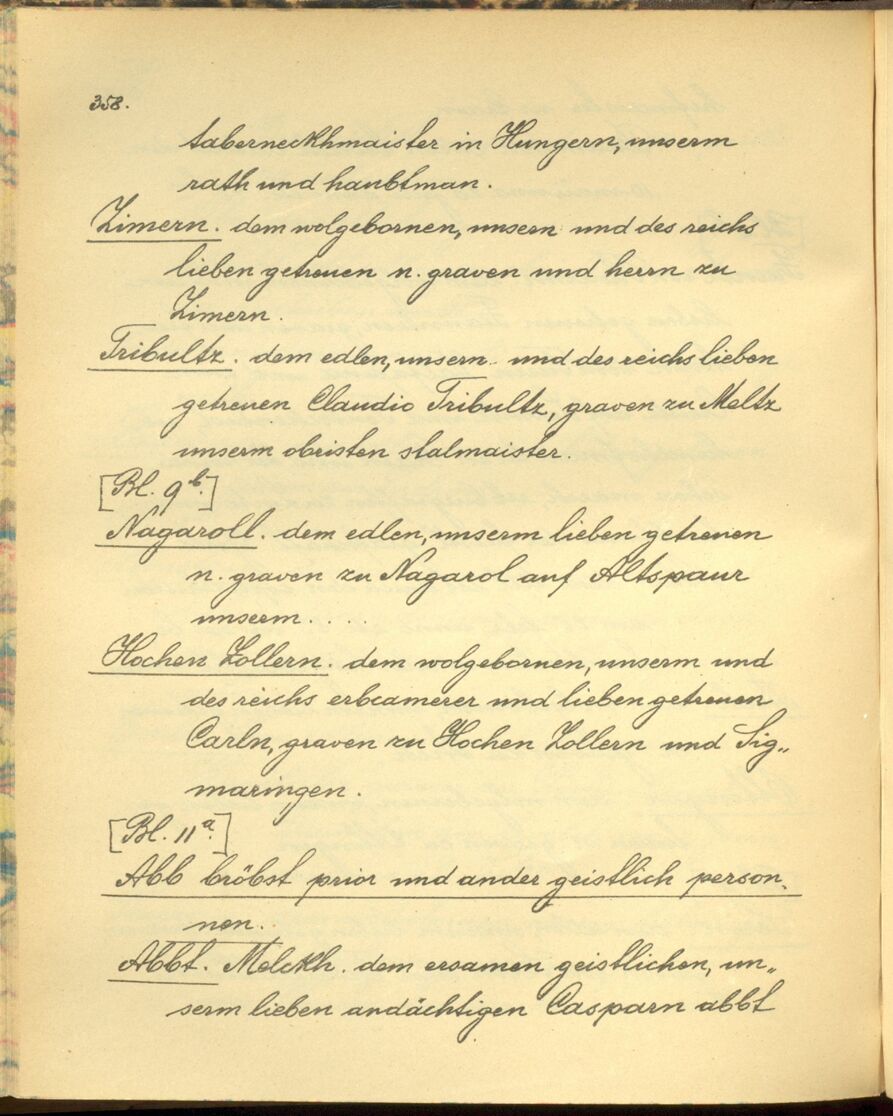 358.
taberneckhmaister in Hungern, unserm
rath und haubtman.
Zimern. dem wolgebornen, unsern und des reichs
lieben getreuen n. graven und herrn zu
Zimern.
Tribultz. dem edlen, unsern und des reichs lieben
getreuen Claudio Tribultz, graven zu Meltz
unserm obristen stalmaister.
[Bl. 9b.]
Nagaroll. dem edlen, unserm lieben getreuen
n. graven zu Nagarol auf Altspaur
unserm . . . . .
Hochen Zollern. dem wolgebornen, unserm und
des reichs erbcamerer und lieben getreuen
Carln, graven zu Hochen Zollern und Sig„
maringen.
[Bl. 11a.]
Abb bröbst prior und ander geistlich person„
nen.
Abbt. Melckh. dem ersamen geistlichen, un„
serm lieben andächtigen Casparn abbt